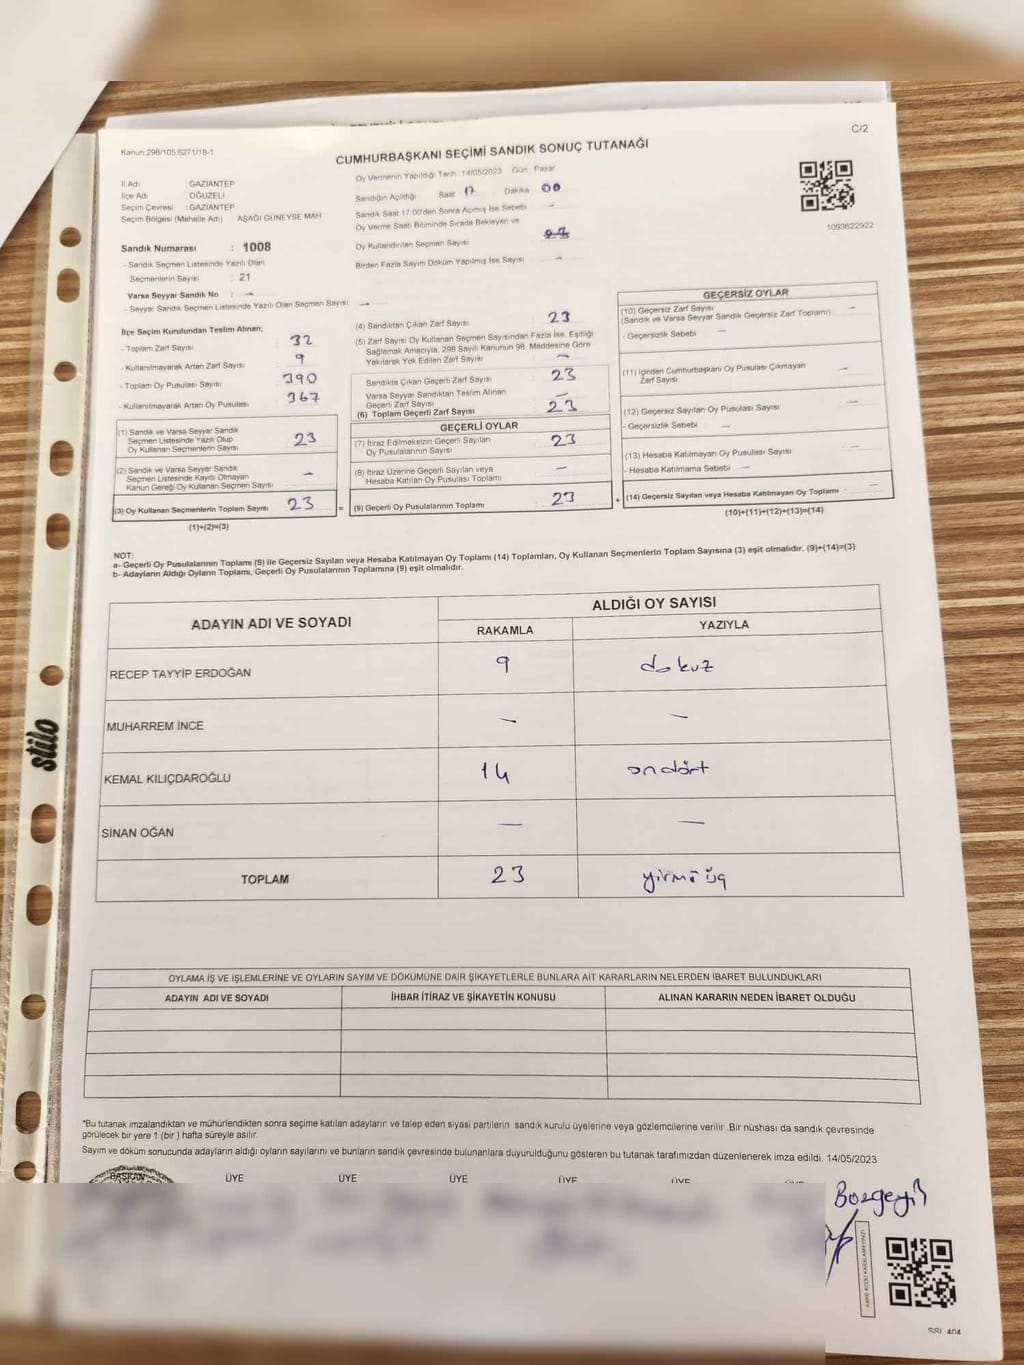 C/2
Kanun:298/105;6271/18-1
CUMHURBAŞKANI SEÇİMİ SANDIK SONUÇ TUTANAĞI
İl Adı : GAZİANTEP
İlçe Adı : OĞUZELİ
Seçim Çevresi : GAZİANTEP
Seçim Bölgesi (Mahalle Adı) AŞAĞI GÜNEYSE MAH
Sandık Numarası : 1008
- Sandık Seçmen Listesinde Yazılı Olan
Seçmenlerin Sayısı : 21
Varsa Seyyar Sandık No : —
- Seyyar Sandık Seçmen Listesinde Yazılı Olan Seçmen Sayısı : —
Oy Vermenin Yapıldığı Tarih : 14/05/2023 Gün : Pazar
Sandığın Açıldığı Saat 17 Dakika 00
Sandık Saat 17:00'den Sonra Açmış İse Sebebi —
Oy Verme Saati Bitiminde Sırada Bekleyen ve
Oy Kullandırılan Seçmen Sayısı
Birden Fazla Sayım Döküm Yapılmış İse Sayısı —
1093622922
İlçe Seçim Kurulundan Teslim Alınan;
- Toplam Zarf Sayısı 32
- Kullanılmayarak Artan Zarf Sayısı 9
- Toplam Oy Pusulası Sayısı 390
- Kullanılmayarak Artan Oy Pusulası 367
(1) Sandık ve Varsa Seyyar Sandık
Seçmen Listesinde Yazılı Olup
Oy Kullanan Seçmenlerin Sayısı 23
(2) Sandık ve Varsa Seyyar Sandık
Seçmen Listesinde Kayıtlı Olmayan
Kanun Gereği Oy Kullanan Seçmen Sayısı —
(3) Oy Kullanan Seçmenlerin Toplam Sayısı 23 =
(1)+(2)=(3)
(4) Sandıktan Çıkan Zarf Sayısı 23
(5) Zarf Sayısı Oy Kullanan Seçmen Sayısından Fazla İse, Eşitliği
Sağlamak Amacıyla, 298 Sayılı Kanunun 98. Maddesine Göre
Yakılarak Yok Edilen Zarf Sayısı —
Sandıkta Çıkan Geçerli Zarf Sayısı 23
Varsa Seyyar Sandıktan Teslim Alınan
Geçerli Zarf Sayısı —
(6) Toplam Geçerli Zarf Sayısı 23
GEÇERLİ OYLAR
(7) İtiraz Edilmeksizin Geçerli Sayılan
Oy Pusulalarının Sayısı 23
(8) İtiraz Üzerine Geçerli Sayılan veya
Hesaba Katılan Oy Pusulası Toplamı —
(9) Geçerli Oy Pusulalarının Toplamı 23 +
GEÇERSİZ OYLAR
(10) Geçersiz Zarf Sayısı
(Sandık ve Varsa Seyyar Sandık Geçersiz Zarf Toplamı) —
- Geçersizlik Sebebi : —
(11) İçinden Cumhurbaşkanı Oy Pusulası Çıkmayan
Zarf Sayısı —
(12) Geçersiz Sayılan Oy Pusulası Sayısı —
- Geçersizlik Sebebi : —
(13) Hesaba Katılmayan Oy Pusulası Sayısı —
- Hesaba Katılmama Sebebi —
(14) Geçersiz Sayılan veya Hesaba Katılmayan Oy Toplamı : —
(10)+(11)+(12)+(13)=(14)
NOT:
a- Geçerli Oy Pusulalarının Toplamı (9) ile Geçersiz Sayılan veya Hesaba Katılmayan Oy Toplamı (14) Toplamları, Oy Kullanan Seçmenlerin Toplam Sayısına (3) eşit olmalıdır. (9)+(14)=(3)
b- Adayların Aldığı Oyların Toplamı, Geçerli Oy Pusulalarının Toplamına (9) eşit olmalıdır.
ADAYIN ADI VE SOYADI ALDIĞI OY SAYISI
RAKAMLA YAZIYLA
RECEP TAYYİP ERDOĞAN 9 dokuz
MUHARREM İNCE — —
KEMAL KILIÇDAROĞLU 14 ondört
SİNAN OĞAN — —
TOPLAM 23 yirmi üç
OYLAMA İŞ VE İŞLEMLERİNE VE OYLARIN SAYIM VE DÖKÜMÜNE DAİR ŞİKAYETLERLE BUNLARA AİT KARARLARIN NELERDEN İBARET BULUNDUKLARI
ADAYIN ADI VE SOYADI İHBAR İTİRAZ VE ŞİKAYETİN KONUSU ALINAN KARARIN NEDEN İBARET OLDUĞU
*Bu tutanak imzalandıktan ve mühürlendikten sonra seçime katılan adayların ve talep eden siyasi partilerin sandık kurulu üyelerine veya gözlemcilerine verilir. Bir nüshası da sandık çevresinde
görülecek bir yere 1 (bir) hafta süreyle asılır.
Sayım ve döküm sonucunda adayların aldığı oyların sayılarını ve bunların sandık çevresinde bulunanlara duyurulduğunu gösteren bu tutanak tarafımızdan düzenlenerek imza edildi. 14/05/2023
BAŞKAN ÜYE ÜYE ÜYE ÜYE ÜYE
Bozgeyik
stilo
SSI 404